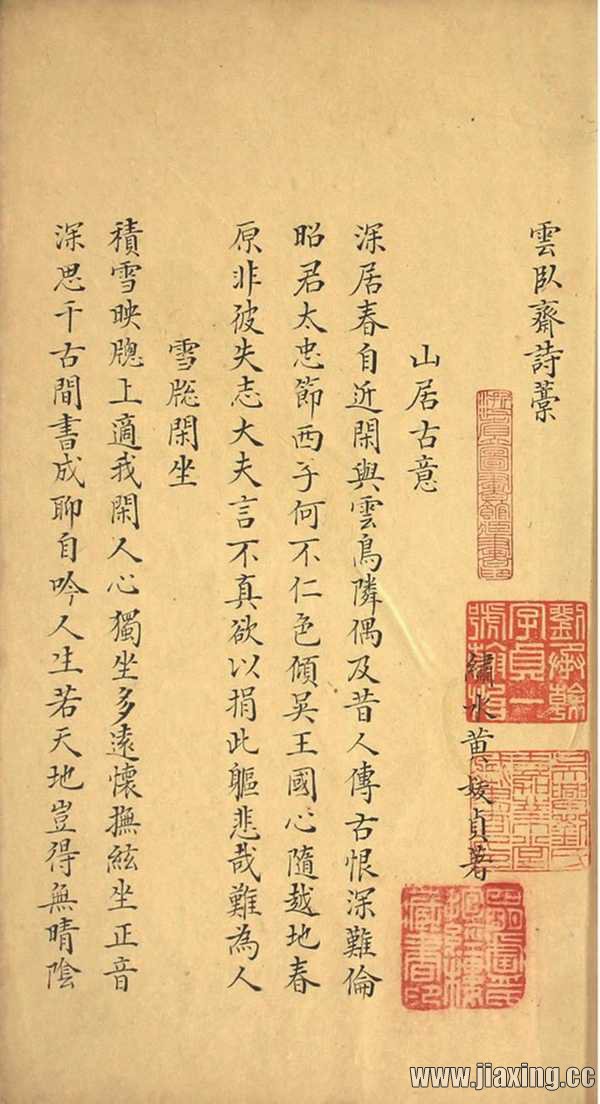 雲臥齋詩藁
繡水黃媛貞著
山居古意
深居春自近閑與雲鳥隣偶及昔人傳古恨深難倫
昭君太忠節西子何不仁色傾吳王國心隨越地春
原非彼失志大夫言不真欲以捐此軀悲哉難為人
雪牎閑坐
積雪映牎上適我閑人心獨坐多遠懷撫絃坐正音
深思千古間書成聊自吟人生若天地豈得無晴陰
劉承幹
字貞一
號翰怡
吳興劉氏
嘉業堂
藏書印
www.jiaxing.cc